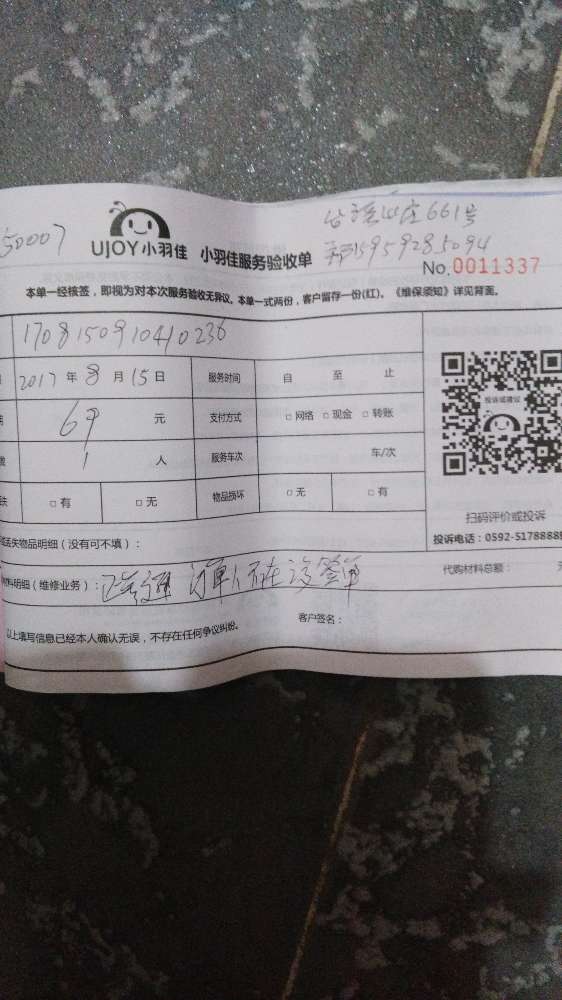 谷强山庄661号
50007
UJOY小羽佳 小羽佳服务验收单
15959285094
No.0011337
本单一经核签，即视为对本次服务验收无异议。本单一式两份，客户留存一份(红)。《维保须知》详见背面。
170815091040236
2017 年 8 月 15 日 服务时间 自 至 止
投诉或建议
69 元 支付方式 □ 网络 □ 现金 □ 转账
1 人 服务车次 车/次
□ 有 □ 无 物品损坏 □ 无 □ 有
扫码评价或投诉
丢失物品明细（没有可不填）：
投诉电话：0592-5178888
明细（维修业务）： 订单人不在 没签单
代购材料总额：
客户签名：
以上填写信息已经本人确认无误，不存在任何争议纠纷。